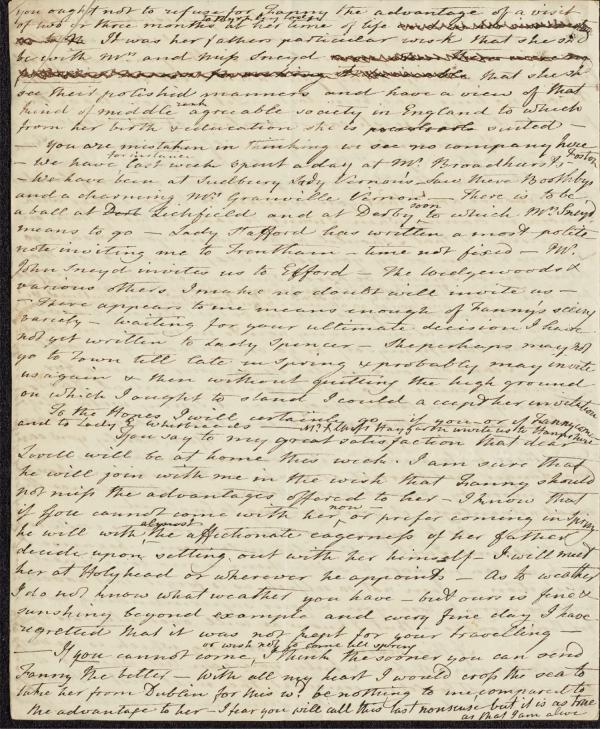 you ought not to refuse for Fanny the advantage of a visit
of two or three months at her time of life
It was her fathers particular wish that she shd
be with Mrs and Miss Sneyd
that she shd
see their polished manners and have a view of that
kind of middle rank agreable society in England to which
from her birth & education she is suited –
– You are mistaken in thinking we see no company here
– We have for instance last week spent a day at Mr. Broadhursts – Foston
– We have been at Sudbury Lady Vernon's – Saw there Boothbys
and a charming Mrs Granville Vernon – There is to be
a ball at Lichfield and at Derby soon, to which Mrs Sneyd
means to go – Lady Stafford has written a most polite
note inviting me to Trentham – time not fixed – Mr.
John Sneyd invites us to Elford – The Wedgewoods &
various others I make no doubt will invite us –
– There appears to me means enough of Fanny's seeing
variety – Waiting for your ultimate decision I have
not yet written to Lady Spencer – She perhaps may not
go to Town till late in Spring & probably may invite
us again & then without quitting the high ground
on which I ought to stand I could accept her invitation
To the Hopes I will certainly go – if you or if Fanny come
and to Lady E Whitbreads – Mr & Miss Haygarth invite us to Hampshire
You say to my great satisfaction that dear
Lovell will be at home this week. I am sure that
he will join with me in the wish that Fanny should
not miss the advantages offered to her – I know that
if you cannot come with her now, or prefer coming in Spring
he will with almost the affectionate eagerness of her father
decide upon setting out with her himself – I will meet
her at Holyhead or wherever he appoints – As to weather
I do not know what weather you have – but ours is fine &
sunshiny beyond example and every fine day I have
regretted that it was not kept for your travelling –
– If you cannot come, or wish not to come till spring I think the sooner you can send
Fanny the better – With all my heart I would cross the sea to
take her from Dublin for this wd. be nothing to me compared to
the advantage to her – I fear you will call this last nonsense but it is as true
as that I am alive